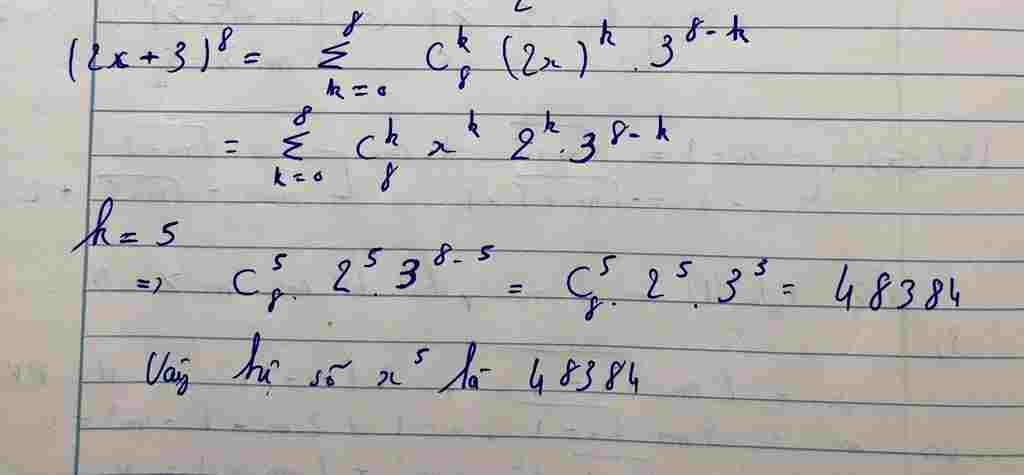 (2x+3)⁸ = Σ_{k=0}^{8} C₈ᵏ (2x)ᵏ . 3⁸⁻ᵏ
= Σ_{k=0}^{8} C₈ᵏ xᵏ 2ᵏ . 3⁸⁻ᵏ
k = 5
=> C₈⁵ . 2⁵ . 3⁸⁻⁵ = C₈⁵ . 2⁵ . 3³ = 48384
Vậy hệ số x⁵ là 48384